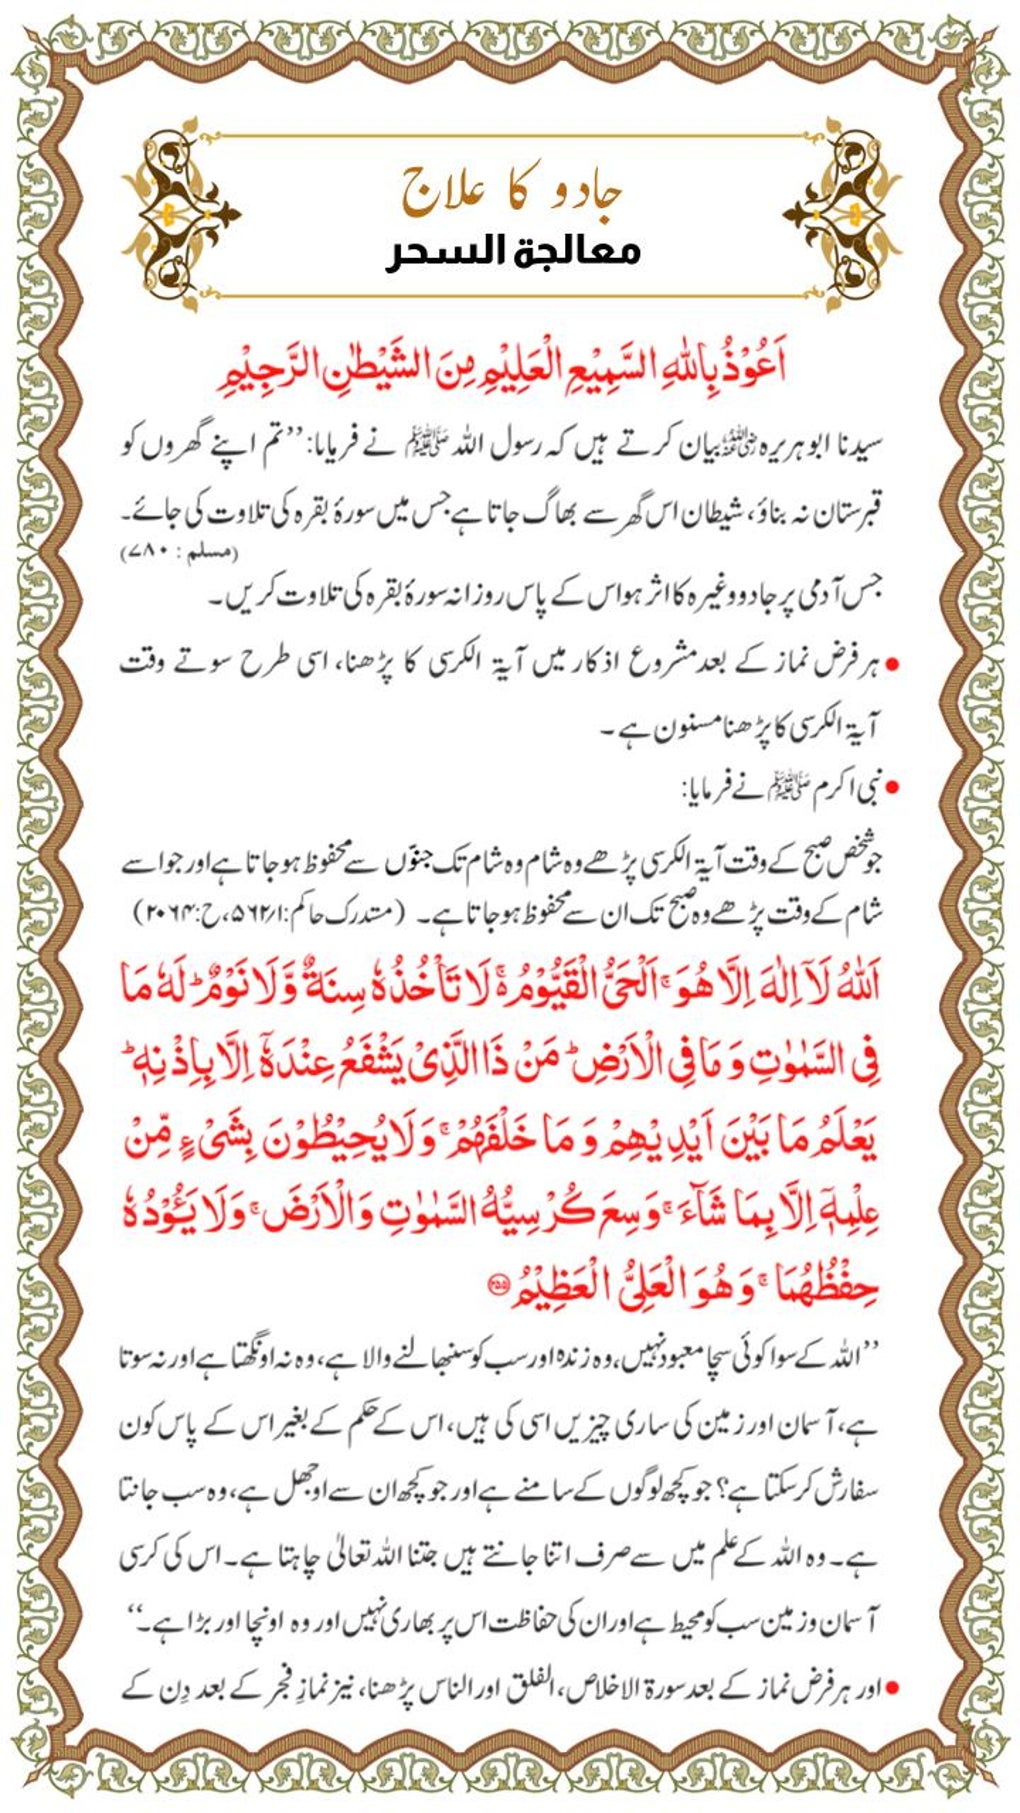 جادو کا علاج
معالجة السحر
اَعُوْذُ بِاللّٰهِ السَّمِيْعِ الْعَلِيْمِ مِنَ الشَّيْطٰنِ الرَّجِيْمِ
سیدنا ابو ہریرہ رضی اللہ عنہ بیان کرتے ہیں کہ رسول اللہ ﷺ نے فرمایا: ’’تم اپنے گھروں کو
قبرستان نہ بناؤ، شیطان اس گھر سے بھاگ جاتا ہے جس میں سورۂ بقرہ کی تلاوت کی جائے۔
(مسلم : ۷۸۰)
جس آدمی پر جادو وغیرہ کا اثر ہو اس کے پاس روزانہ سورۂ بقرہ کی تلاوت کریں۔
• ہر فرض نماز کے بعد مشروع اذکار میں آیۃ الکرسی کا پڑھنا، اسی طرح سوتے وقت
آیۃ الکرسی کا پڑھنا مسنون ہے۔
• نبی اکرم ﷺ نے فرمایا:
جو شخص صبح کے وقت آیۃ الکرسی پڑھے وہ شام وہ شام تک جنوّں سے محفوظ ہو جاتا ہے اور جو اسے
شام کے وقت پڑھے وہ صبح تک ان سے محفوظ ہو جاتا ہے۔ (مستدرک حاکم:۱/۵۶۲، ح:۲۰۶۴)
اَللّٰهُ لَآ اِلٰهَ اِلَّا هُوَ ۚ اَلْحَيُّ الْقَيُّوْمُ ۚ لَا تَاْخُذُهٗ سِنَةٌ وَّلَا نَوْمٌ ؕ لَهٗ مَا
فِى السَّمٰوٰتِ وَ مَا فِى الْاَرْضِ ؕ مَنْ ذَا الَّذِىْ يَشْفَعُ عِنْدَهٗٓ اِلَّا بِاِذْنِهٖ ؕ
يَعْلَمُ مَا بَيْنَ اَيْدِيْهِمْ وَ مَا خَلْفَهُمْ ۚ وَلَا يُحِيْطُوْنَ بِشَىْءٍ مِّنْ
عِلْمِهٖٓ اِلَّا بِمَا شَآءَ ۚ وَسِعَ كُرْسِيُّهُ السَّمٰوٰتِ وَالْاَرْضَ ۚ وَلَا يَـُٔوْدُهٗ
حِفْظُهُمَا ۚ وَهُوَ الْعَلِىُّ الْعَظِيْمُ ۲۵۵
’’اللہ کے سوا کوئی سچا معبود نہیں، وہ زندہ اور سب کو سنبھالنے والا ہے، وہ نہ اونگھتا ہے اور نہ سوتا
ہے، آسمان اور زمین کی ساری چیزیں اسی کی ہیں، اس کے حکم کے بغیر اس کے پاس کون
سفارش کر سکتا ہے؟ جو کچھ لوگوں کے سامنے ہے اور جو کچھ ان سے اوجھل ہے، وہ سب جانتا
ہے۔ وہ اللہ کے علم میں سے صرف اتنا جانتے ہیں جتنا اللہ تعالیٰ چاہتا ہے۔ اس کی کرسی
آسمان و زمین سب کو محیط ہے اور ان کی حفاظت اس پر بھاری نہیں اور وہ اونچا اور بڑا ہے۔‘‘
• اور ہر فرض نماز کے بعد سورۃ الاخلاص، الفلق اور الناس پڑھنا، نیز نمازِ فجر کے بعد دِن کے